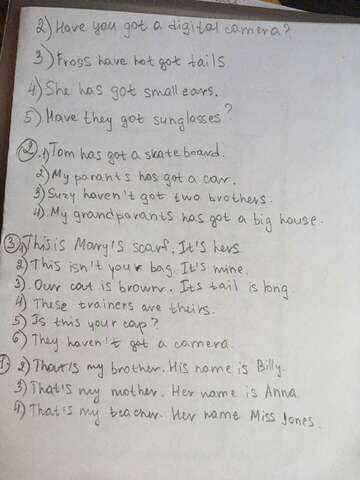 2) Have you got a digital camera?
3) Frogs have not got tails.
4) She has got small ears.
5) Have they got sunglasses?
2. 1) Tom has got a skateboard.
2) My parants has got a car.
3) Suzy haven't got two brothers.
4) My grandparants has got a big house.
3 1) This is Mary's scarf. It's hers
2) This isn't your bag. It's mine.
3). Our cat is brown. Its tail is long.
4) These trainers are theirs.
5) Is this your cap?
6) They haven't got a camera.
2) That's my brother. His name is Billy.
3) That's my mother. Her name is Anna.
4) That's my teacher. Her name Miss Jones.